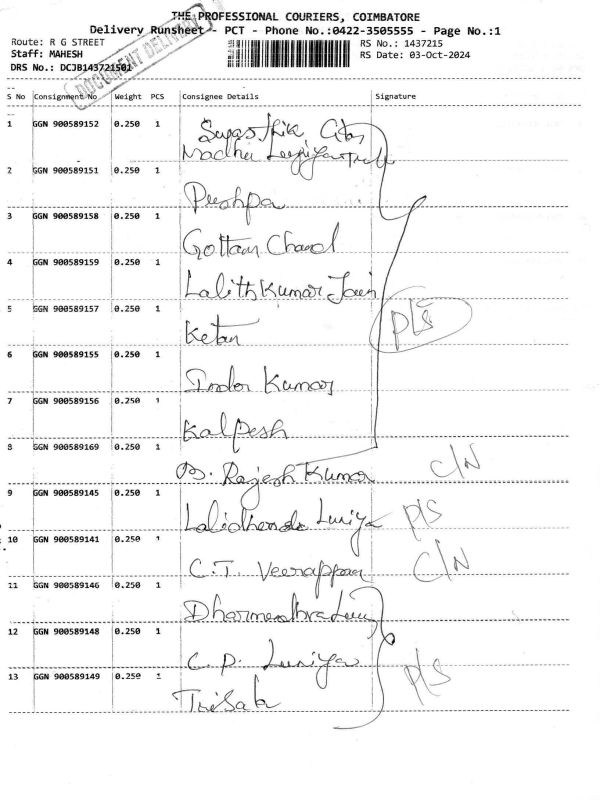 THE PROFESSIONAL COURIERS, COIMBATORE
Delivery Runsheet - PCT - Phone No.:0422-3505555 - Page No.:1
Route: R G STREET
RS No.: 1437215
Staff: MAHESH
RS Date: 03-Oct-2024
DRS No.: DCJB143721501
DOCUMENT DELIVERY
S No Consignment No Weight PCS Consignee Details Signature
1 GGN 900589152 0.250 1
Madhu
2 GGN 900589151 0.250 1
Pushpa
3 GGN 900589158 0.250 1
Gottam Chand
4 GGN 900589159 0.250 1
Lalith Kumar Jain
5 GGN 900589157 0.250 1 P/S
Ketan
6 GGN 900589155 0.250 1
Indor Kumar
7 GGN 900589156 0.250 1
Kalpesh
8 GGN 900589169 0.250 1 C/N
B. Rajesh Kumar
9 GGN 900589145 0.250 1 P/S
Luniya
10 GGN 900589141 0.250 1 C/N
C.T. Veerappan
11 GGN 900589146 0.250 1
Dharmendra
12 GGN 900589148 0.250 1
C.P. Luniya P/S
13 GGN 900589149 0.250 1